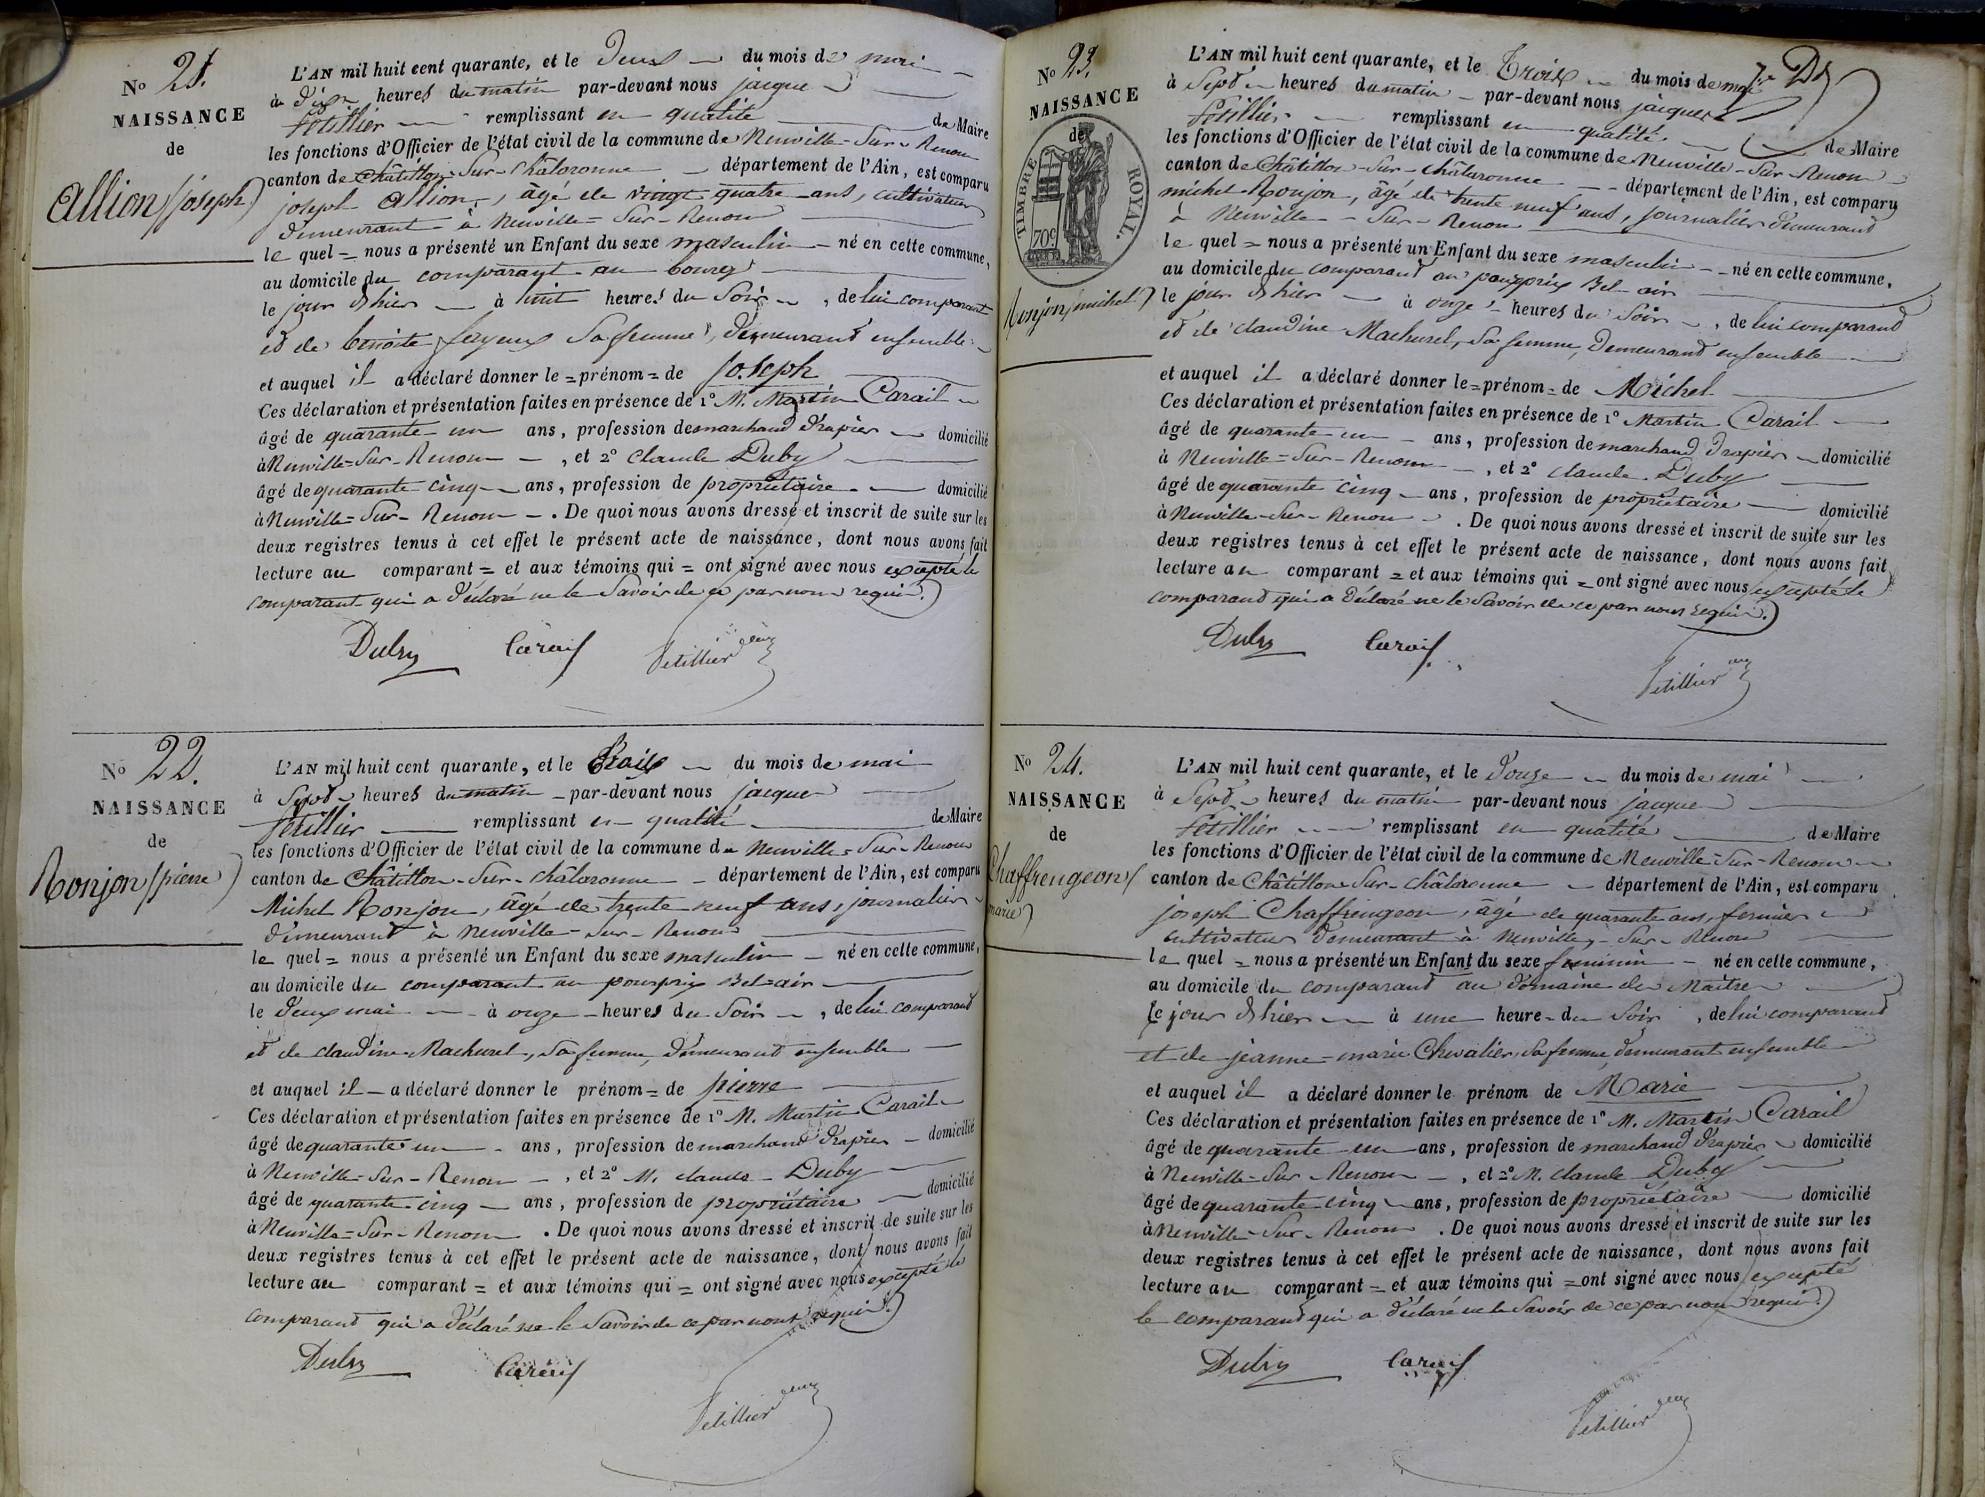 N° 21.
NAISSANCE
de
Allion (joseph)
L'AN mil huit cent quarante, et le Deux du mois de mai
à dix heures du matin par-devant nous jacque
Petillier remplissant en qualité de Maire
les fonctions d'Officier de l'état civil de la commune de Neuville-Sur-Renom
canton de Châtillon-Sur-Châlaronne département de l'Ain, est comparu
joseph Allion, âgé de vingt quatre ans, cultivateur
demeurant à Neuville-Sur-Renom
le quel = nous a présenté un Enfant du sexe masculin né en cette commune,
au domicile du comparant au bourg
le jour d'hier à huit heures du Soir, de lui comparant
et de benoite fayeux Sa femme, demeurant ensemble
et auquel il a déclaré donner le = prénom = de Joseph
Ces déclaration et présentation faites en présence de 1° M. Martin Carail
âgé de quarante un ans, profession de marchand drapier domicilié
à Neuville-Sur-Renom, et 2° Claude Duby
âgé de quarante cinq ans, profession de propriétaire domicilié
à Neuville-Sur-Renom. De quoi nous avons dressé et inscrit de suite sur les
deux registres tenus à cet effet le présent acte de naissance, dont nous avons fait
lecture au comparant = et aux témoins qui = ont signé avec nous excepté le
comparant qui a déclaré ne le Savoir de ce par nous requis.)
Duby Carail Petillier
N° 22.
NAISSANCE
de
Ronjon (pierre)
L'AN mil huit cent quarante, et le Trois du mois de mai
à Sept heures du matin par-devant nous jacque
Petillier remplissant en qualité de Maire
les fonctions d'Officier de l'état civil de la commune de Neuville-Sur-Renom
canton de Châtillon-Sur-Châlaronne département de l'Ain, est comparu
Michel Ronjon, âgé de trente neuf ans, journalier
demeurant à Neuville-Sur-Renom
le quel = nous a présenté un Enfant du sexe masculin né en cette commune,
au domicile du comparant au pourprix Bel-air
le deux mai à onze heures du Soir, de lui comparand
et de claudine Machurel, Sa femme, demeurant ensemble
et auquel il a déclaré donner le prénom = de pierre
Ces déclaration et présentation faites en présence de 1° M. Martin Carail
âgé de quarante un ans, profession de marchand drapier domicilié
à Neuville-Sur-Renom, et 2° M. claude Duby
âgé de quarante cinq ans, profession de propriétaire domicilié
à Neuville-Sur-Renom. De quoi nous avons dressé et inscrit de suite sur les
deux registres tenus à cet effet le présent acte de naissance, dont nous avons fait
lecture au comparant = et aux témoins qui = ont signé avec nous excepté le
comparant qui a déclaré ne le Savoir de ce par nous requis.)
Duby Carail Petillier
N° 23.
NAISSANCE
de
TIMBRE ROYAL.
70c
Ronjon (michel)
L'AN mil huit cent quarante, et le Trois du mois de mai
à Sept heures du matin par-devant nous jacque
Petillier remplissant en qualité de Maire
les fonctions d'Officier de l'état civil de la commune de Neuville-Sur-Renom
canton de Châtillon-Sur-Châlaronne département de l'Ain, est comparu
michel Ronjon, âgé de trente neuf ans, journalier demeurant
à Neuville-Sur-Renom
le quel = nous a présenté un Enfant du sexe masculin né en cette commune,
au domicile du comparand au pourprix Bel-air
le jour d'hier à onze heures du Soir, de lui comparand
et de claudine Machurel, Sa femme, demeurand ensemble
et auquel il a déclaré donner le = prénom = de Michel
Ces déclaration et présentation faites en présence de 1° Martin Carail
âgé de quarante un ans, profession de marchand drapier domicilié
à Neuville-Sur-Renom, et 2° claude Duby
âgé de quarante cinq ans, profession de propriétaire domicilié
à Neuville-Sur-Renom. De quoi nous avons dressé et inscrit de suite sur les
deux registres tenus à cet effet le présent acte de naissance, dont nous avons fait
lecture au comparant = et aux témoins qui = ont signé avec nous excepté le
comparand qui a déclaré ne le Savoir de ce par nous requis.)
Duby Carail
Petillier
N° 24.
NAISSANCE
de
Chaffrengeon (
marie)
L'AN mil huit cent quarante, et le douze du mois de mai
à Sept heures du matin par-devant nous jacque
Petillier remplissant en qualité de Maire
les fonctions d'Officier de l'état civil de la commune de Neuville-Sur-Renom
canton de Châtillon-Sur-Châlaronne département de l'Ain, est comparu
joseph Chaffrengeon, âgé de quarante ans, fermier
cultivateur demeurant à Neuville-Sur-Renom
le quel = nous a présenté un Enfant du sexe feminin né en cette commune,
au domicile du comparand au domaine de Maitre
le jour d'hier à une heure du Soir, de lui comparand
et de jeanne-marie Chevalier, Sa femme, demeurant ensemble
et auquel il a déclaré donner le prénom de Marie
Ces déclaration et présentation faites en présence de 1° M. Martin Carail
âgé de quarante un ans, profession de marchand drapier domicilié
à Neuville-Sur-Renom, et 2° M. claude Duby
âgé de quarante cinq ans, profession de propriétaire domicilié
à Neuville-Sur-Renom. De quoi nous avons dressé et inscrit de suite sur les
deux registres tenus à cet effet le présent acte de naissance, dont nous avons fait
lecture au comparant = et aux témoins qui = ont signé avec nous excepté
le comparand qui a déclaré ne le Savoir de ce par nous requis.)
Duby Carail
Petillier